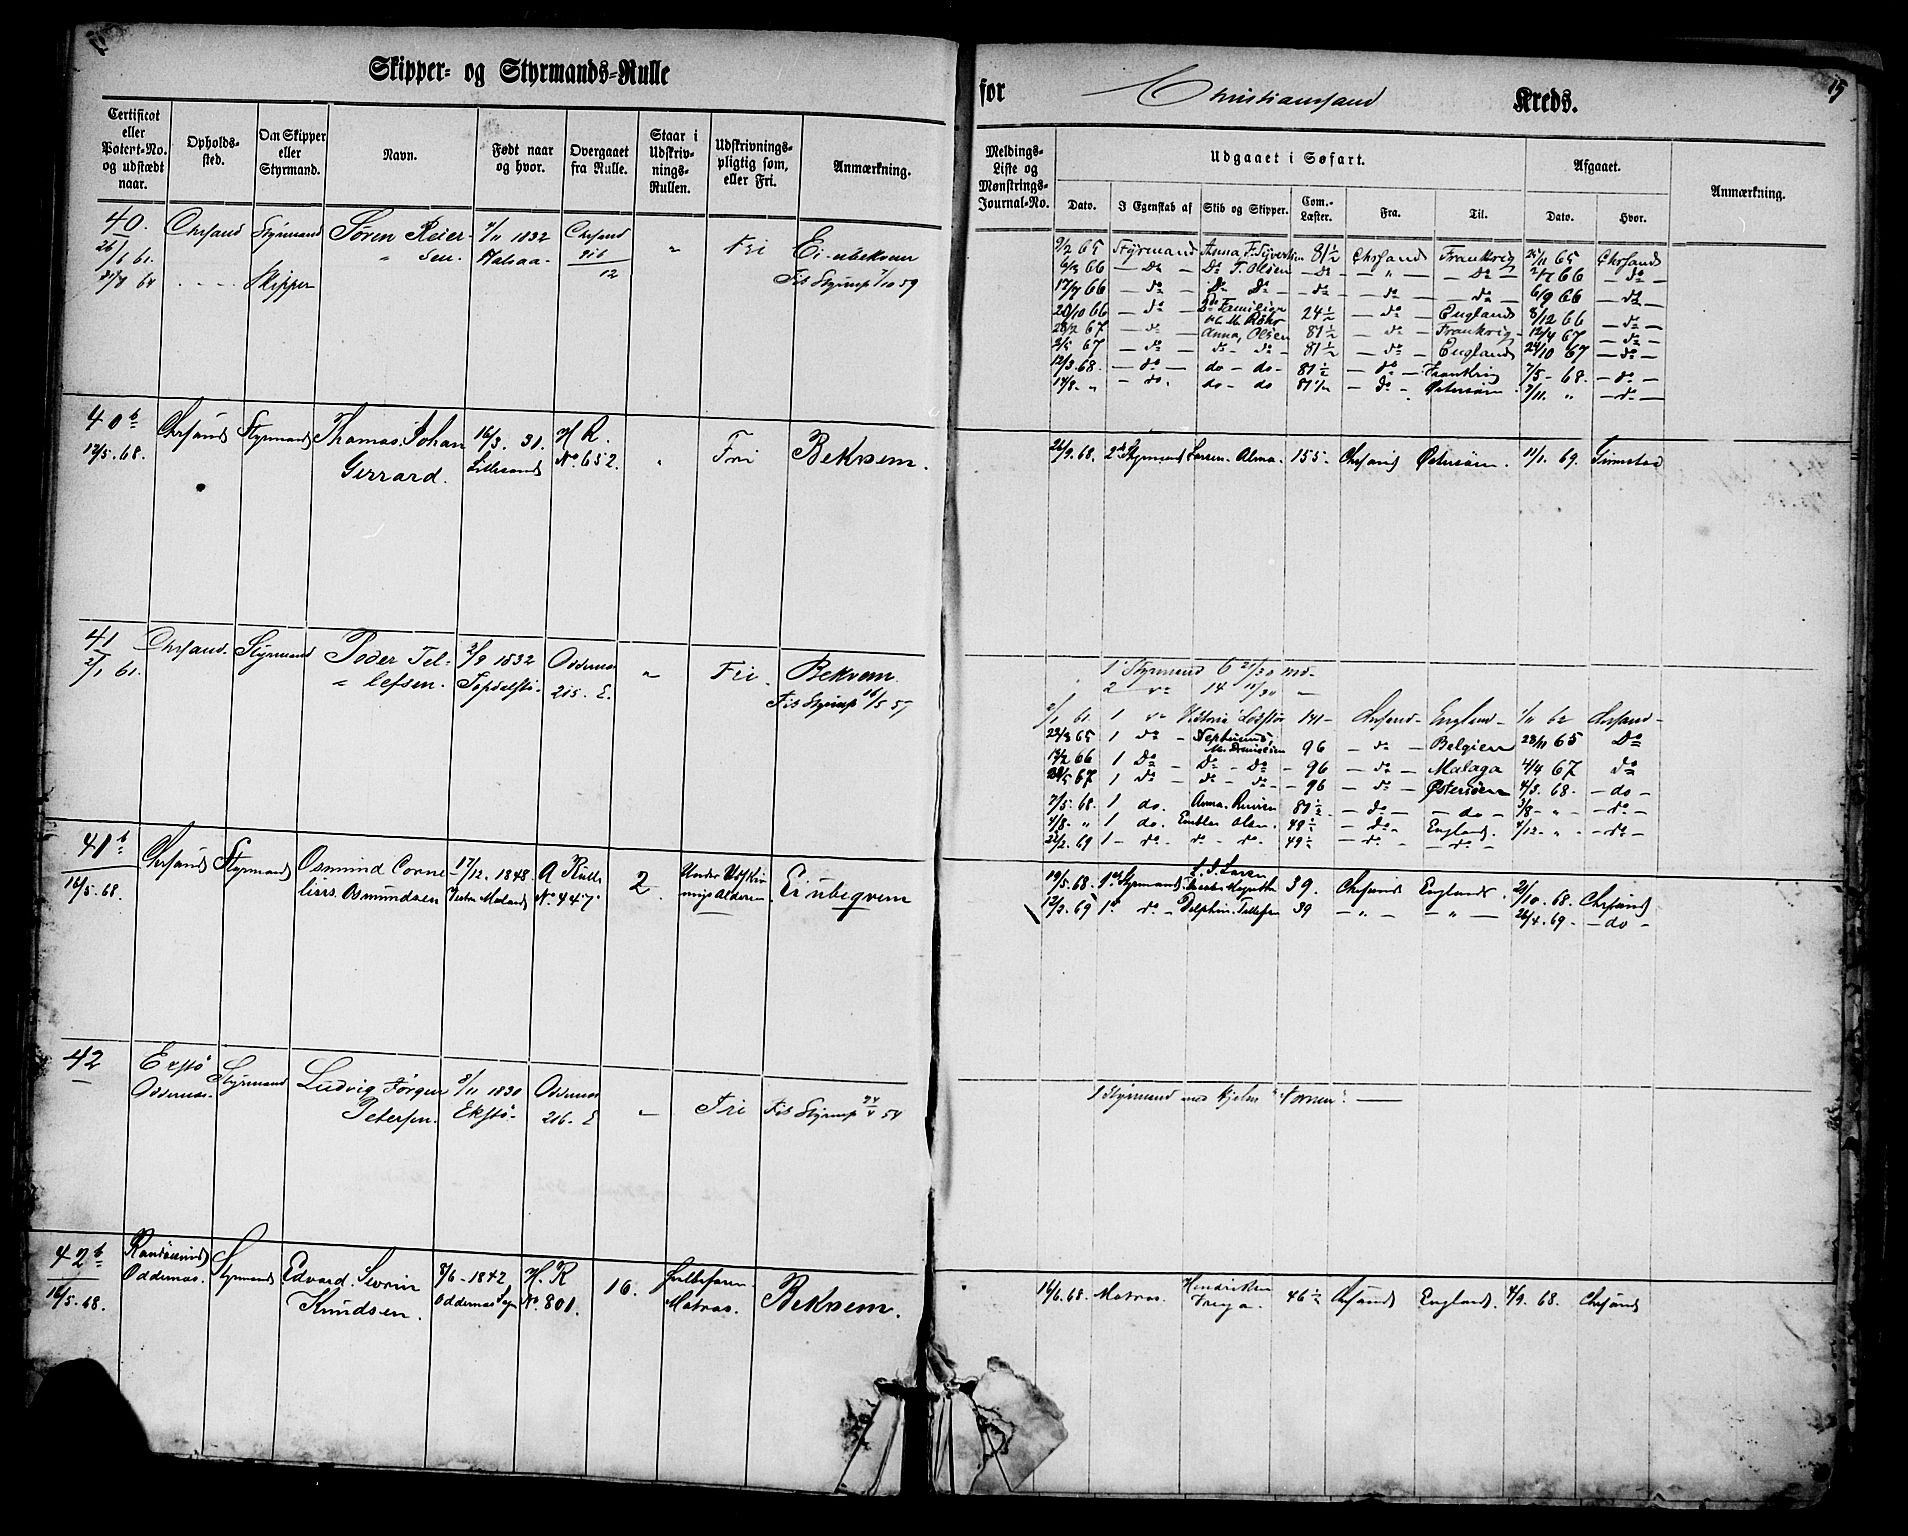 Skipper- og Styrmands-Rulle
for Christianssand Kreds.
15
Certificat eller Patent-No. og udstedt naar.
Opholds-sted.
Om Skipper eller Styrmand.
Navn.
Født naar og hvor.
Overgaaet fra Rulle.
Staar i Udskriv-nings-Rullen.
Udskrivnings-pligtig som, eller Fri.
Anmærkning.
Meldings-Liste og Mønstrings-Journal-No.
Udgaaet i Søfart.
Dato.
I Egenskab af
Skib og Skipper.
Com.-Læster.
Fra.
Til.
Afgaaet.
Dato.
Hvor.
Anmærkning.
40. Chrsand Styrmand Søren Reier- 1832 Chrsand " Fri Ei ubekvem
26/6 61. " sen. Halsaa 12 Fis Styrmp 59
64 Skipper
9/2 65 Styrmand Anna, F. Syvertsen 81½ Chrsand Frankrig 65 Chrsand
6/3 66 — Do — Do T. Olsen — Do — " — Do — 66 — do —
17/7 66 — do — Do Do — do — — do — — do — 6/9 66 — do —
20/10 66 — do — 24½ — do — England 8/12 66 — do —
28/2 67 — do — Anna, Olsen 81½ — do — Frankrig 12/4 67 — do —
2/5 67 — do — do — do — 81½ — do — England 24/10 67 — do —
12/3 68. — do — do — do — 81½ — do — Frankrig 7/5 - 68. — do —
14/8. " — do. do — do 81½ — do. Østersøen. 3/11. " — do —
40 b Chrsand Styrmand Thomas Johan 16/3. 31. H R. " Fri Bekvem.
12/5. 68. Gerrard. Lillesand No. 652.
26/9. 68. 2d Styrmand Larsen. Alma. 155. Chrsand Østersøen. 11/1. 69. Grimstad
41 Chrsand. Styrmand Peder Tel- 2/9 1832 Oddernes " Fri. Bekvem.
2/1 61. " lefsen. Topdalsfj. 215. E. Fis Styrmp 16/5 57
1 Styrmand 6 21/30 md-
2 — do 14 11/30 —
2/1 61. 1 do Victoria 141 — Chrsand — England — 62 Chrsand —
65 1 do — Neptunus, 96 — do — Belgien 28/11 65 Do
66 1 Do — Do — Do — 96 — do — Malaga 4/4 67 do
67 1 do — do — do — 96 — do — Østersøen 4/3. 68. — do —
7/5. 68. 1 do. Anna. 81½ — do — — do — 3/8 - " — do —
4/8. " 1 do. Emblar Olsen. 49½ — do — England. 4/12 - " — do —
22/2. 69 1 — do. — do. — do. 49½ — do. — do —
41 b Chrsand Styrmand Osmund Corne- 17/12. 1848. A Rulle 2 Under Udskriv- Ei ubeqvem
16/5. 68. liss. Osmundsen No. 447. nings Alderen
19/5. 68. 1 Styrmand 39. Chrsand England. 21/10. 68. Chrsand
12/3. 69 1 do — Delphin. Tellefsen 39 — " — — " — 26/4. 69 — — do —
42 Oddernes. Styrmand Ludvig Jørgen 1830 Oddernes " Fri Fis Styrmp 54
Petersen. Ekstø. 216. E
1 Styrmand med Hjelm "Tornen". —
42 b Randøsund Styrmand Edvard Severin 8/6 - 1842 H. R 16. Helbefaren Bekvem.
16/5. 68. Oddernes. Knudsen. Oddernes Sogn No. 801. Matros.
14/6. 68. Matros. Hendriksen 46½ Chrsand England. 4/9. 68. Chrsand
Freya.